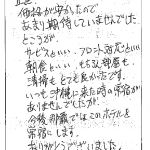 価格が安かったので
あまり期待していませんでした
ところが、
サービスといい、フロント対応といい
朝食といい、もちろん部屋も
清掃もとても良かったです。
いつも沖縄に来た時の常宿が
ありませんでしたが
今後那覇ではこのホテルを
常宿にします。
ありがとうございました。